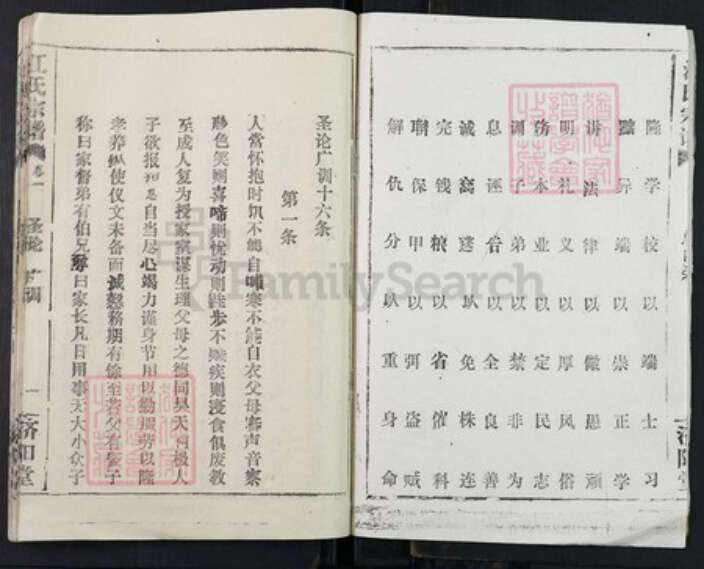 隆学校以端士习
黜异端以崇正学
讲法律以儆愚顽
明礼义以厚风俗
务本业以定民志
训子弟以禁非为
息诬告以全良善
诫窝逃以免株连
完钱粮以省催科
联保甲以弭盗贼
解仇分以重身命
圣论广训十六条
第一条
人当怀抱时饥不能自哺寒不能自衣父母审声音察
形色笑则喜啼则忧动则跬步不离疾则寝食俱废教
至成人复为授家室谋生理父母之德同昊天罔极人
子欲报 恩自当尽心竭力谨身节用以勤服劳以隆
孝养纵使仪文未备而诚慤务期有馀至若父有冢子
称曰家督弟有伯兄尊曰家长凡日用事无大小众子
江氏宗谱
卷一
圣论广训
一
济阳堂
FamilySearch